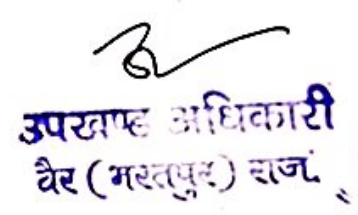 उपखण्ड अधिकारी
वैर (भरतपुर) राज.